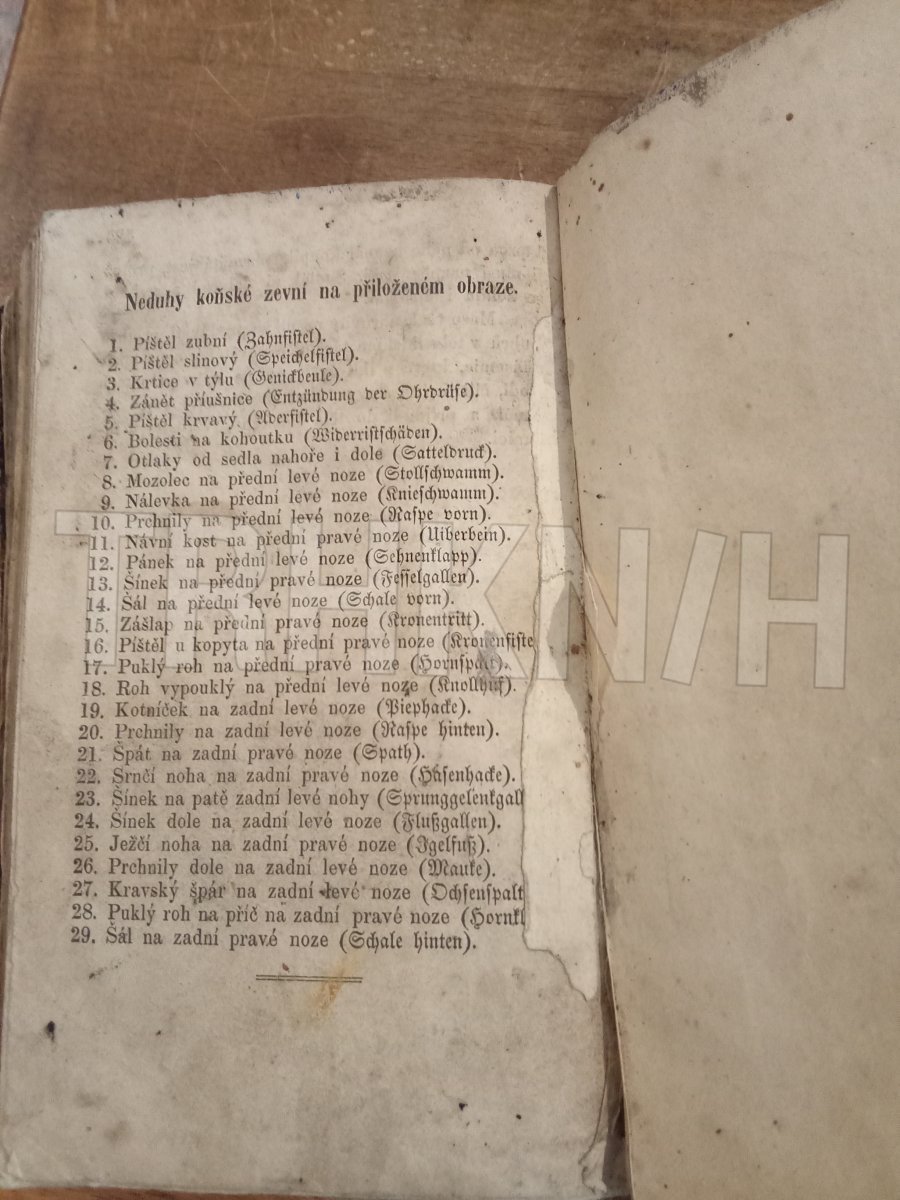 Neduhy koňské zevní na přiloženém obraze.
1. Píštěl zubní (Zahnfistel).
2. Píštěl slinový (Speichelfistel).
3. Krtice v týlu (Genickbeule).
4. Zánět příušnice (Entzündung der Ohrdrüse).
5. Píštěl krvavý (Aderfistel).
6. Bolesti na kohoutku (Widerristschäden).
7. Otlaky od sedla nahoře i dole (Satteldruck).
8. Mozolec na přední levé noze (Stollschwamm).
9. Nálevka na přední levé noze (Knieschwamm).
10. Prchnily na přední levé noze (Raspe vorn).
11. Návní kost na přední pravé noze (Uiberbein).
12. Pánek na přední levé noze (Sehnenklapp).
13. Šínek na přední pravé noze (Fesselgallen).
14. Šál na přední levé noze (Schale vorn).
15. Zášlap na přední pravé noze (Kronentritt).
16. Píštěl u kopyta na přední pravé noze (Kronenfiste
17. Puklý roh na přední pravé noze (Hornspalt).
18. Roh vypouklý na přední levé noze (Knollhuf).
19. Kotníček na zadní levé noze (Piephacke).
20. Prchnily na zadní levé noze (Raspe hinten).
21. Špát na zadní pravé noze (Spath).
22. Srnčí noha na zadní pravé noze (Hasenhacke).
23. Šínek na patě zadní levé nohy (Sprunggelenkgall
24. Šínek dole na zadní levé noze (Flußgallen).
25. Ježčí noha na zadní pravé noze (Igelfuß).
26. Prchnily dole na zadní levé noze (Mauke).
27. Kravský špár na zadní levé noze (Ochsenspalt
28. Puklý roh na příč na zadní pravé noze (Hornkl
29. Šál na zadní pravé noze (Schale hinten).